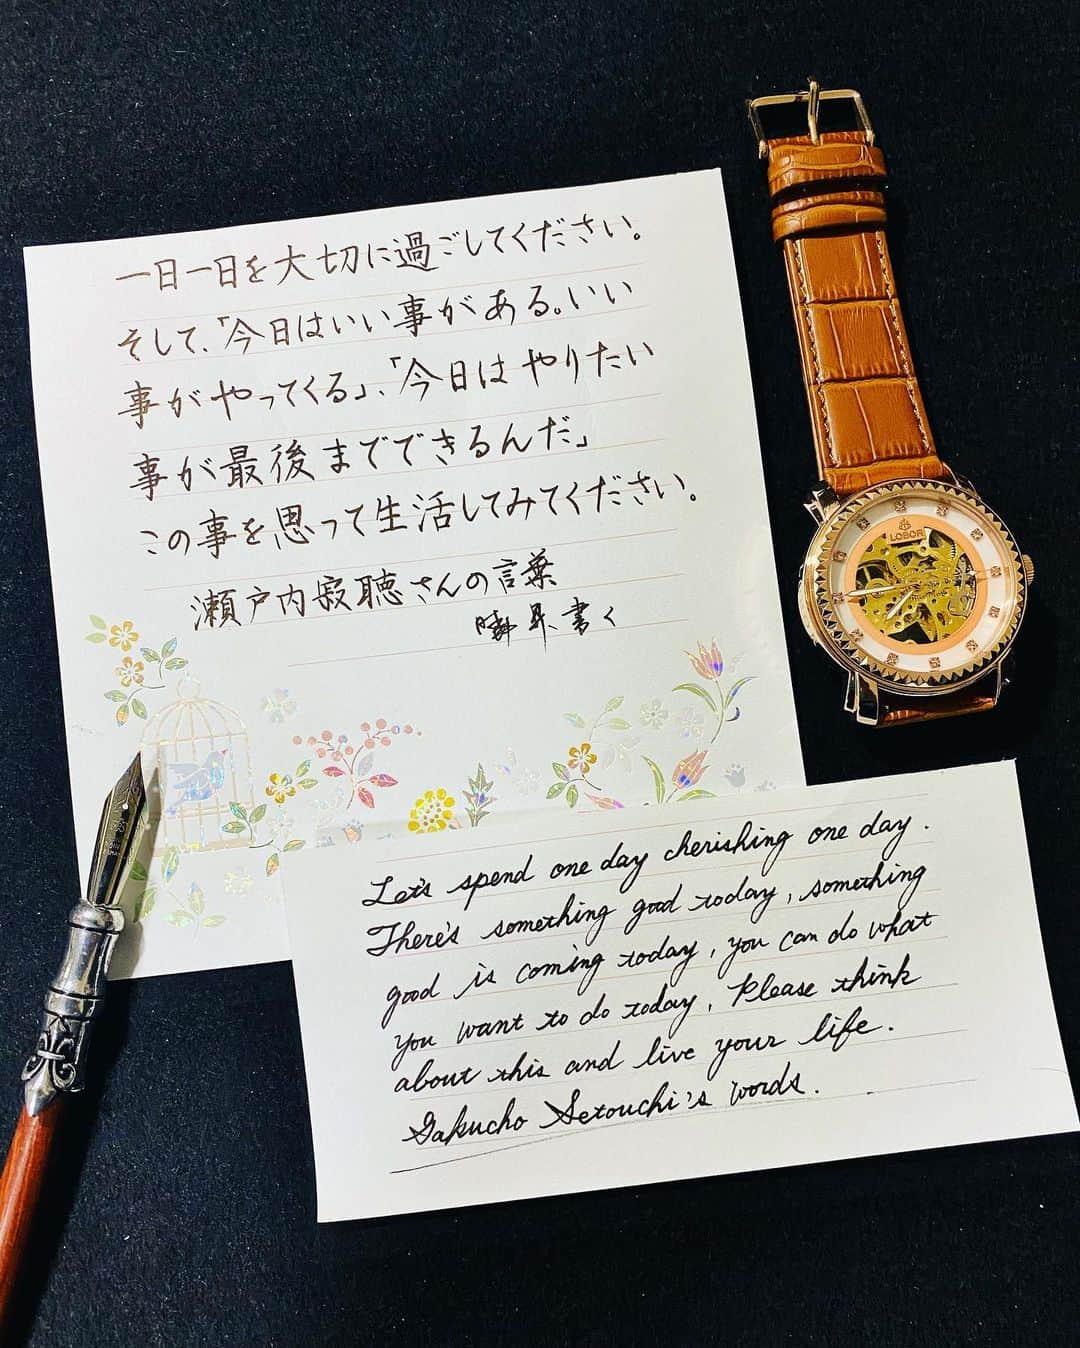 一日一日を大切に過ごしてください。
そして、「今日はいい事がある。いい
事がやってくる」、「今日はやりたい
事が最後までできるんだ」
この事を思って生活してみてください。
瀬戸内寂聴さんの言葉
書く
LOBOR
Let's spend one day cherishing one day.
There's something good today, something
good is coming today, you can do what
you want to do today, Please think
about this and live your life.
Jakucho Setouchi's words.